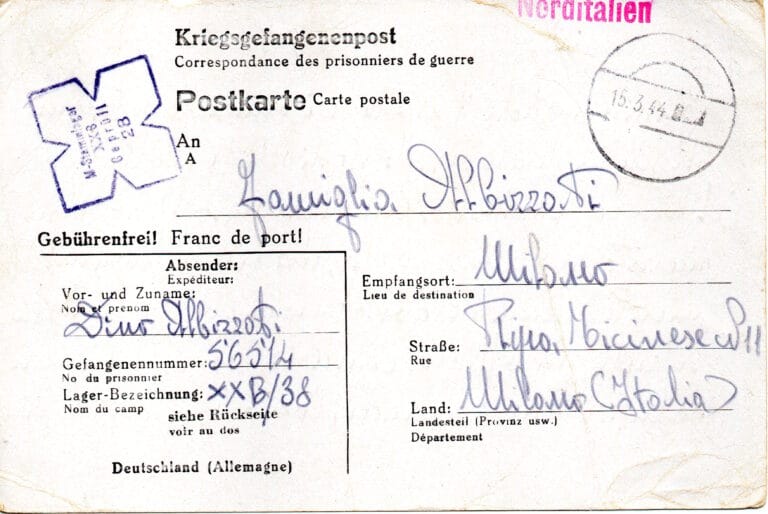 Norditalien
Kriegsgefangenenpost
Correspondance des prisonniers de guerre
Postkarte Carte postale
M-Stammlager
XXB
Geprüft
28
15.3.44
An
A
Famiglia Albizzati
Gebührenfrei! Franc de port!
Absender:
Expéditeur:
Vor- und Zuname:
Nom et prenom
Dino Albizzati
Gefangenennummer: 56514
No du prisonnier
Lager-Bezeichnung: XXB/38
Nom du camp
siehe Rückseite
voir au dos
Deutschland (Allemagne)
Empfangsort: Milano
Lieu de destination
Straße: Ripa Ticinese N 11
Rue
Land: Milano (Italia)
Landesteil (Provinz usw.)
Département